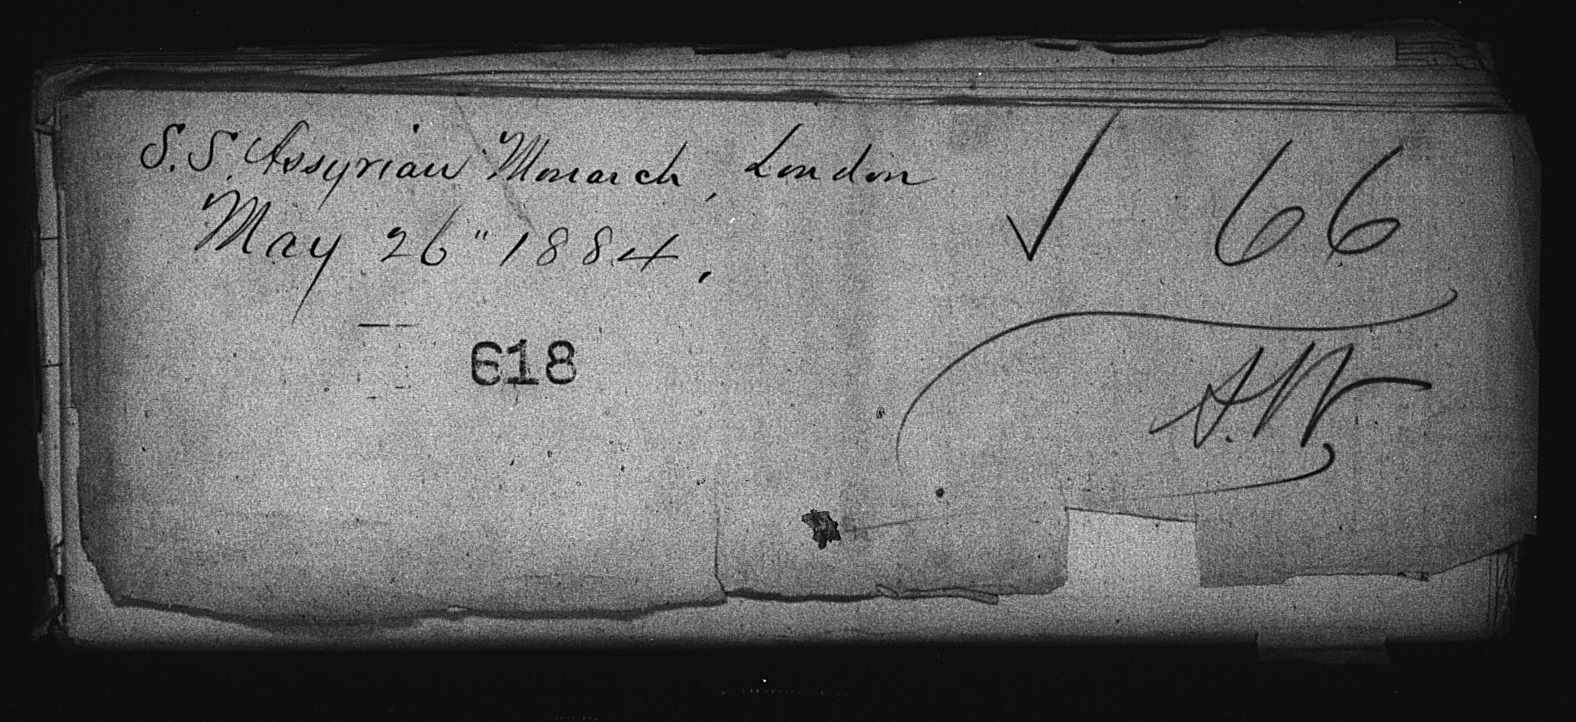 S.S. Assyrian Monarch, London
May 26" 1884.
618
✓ 66
A.W.